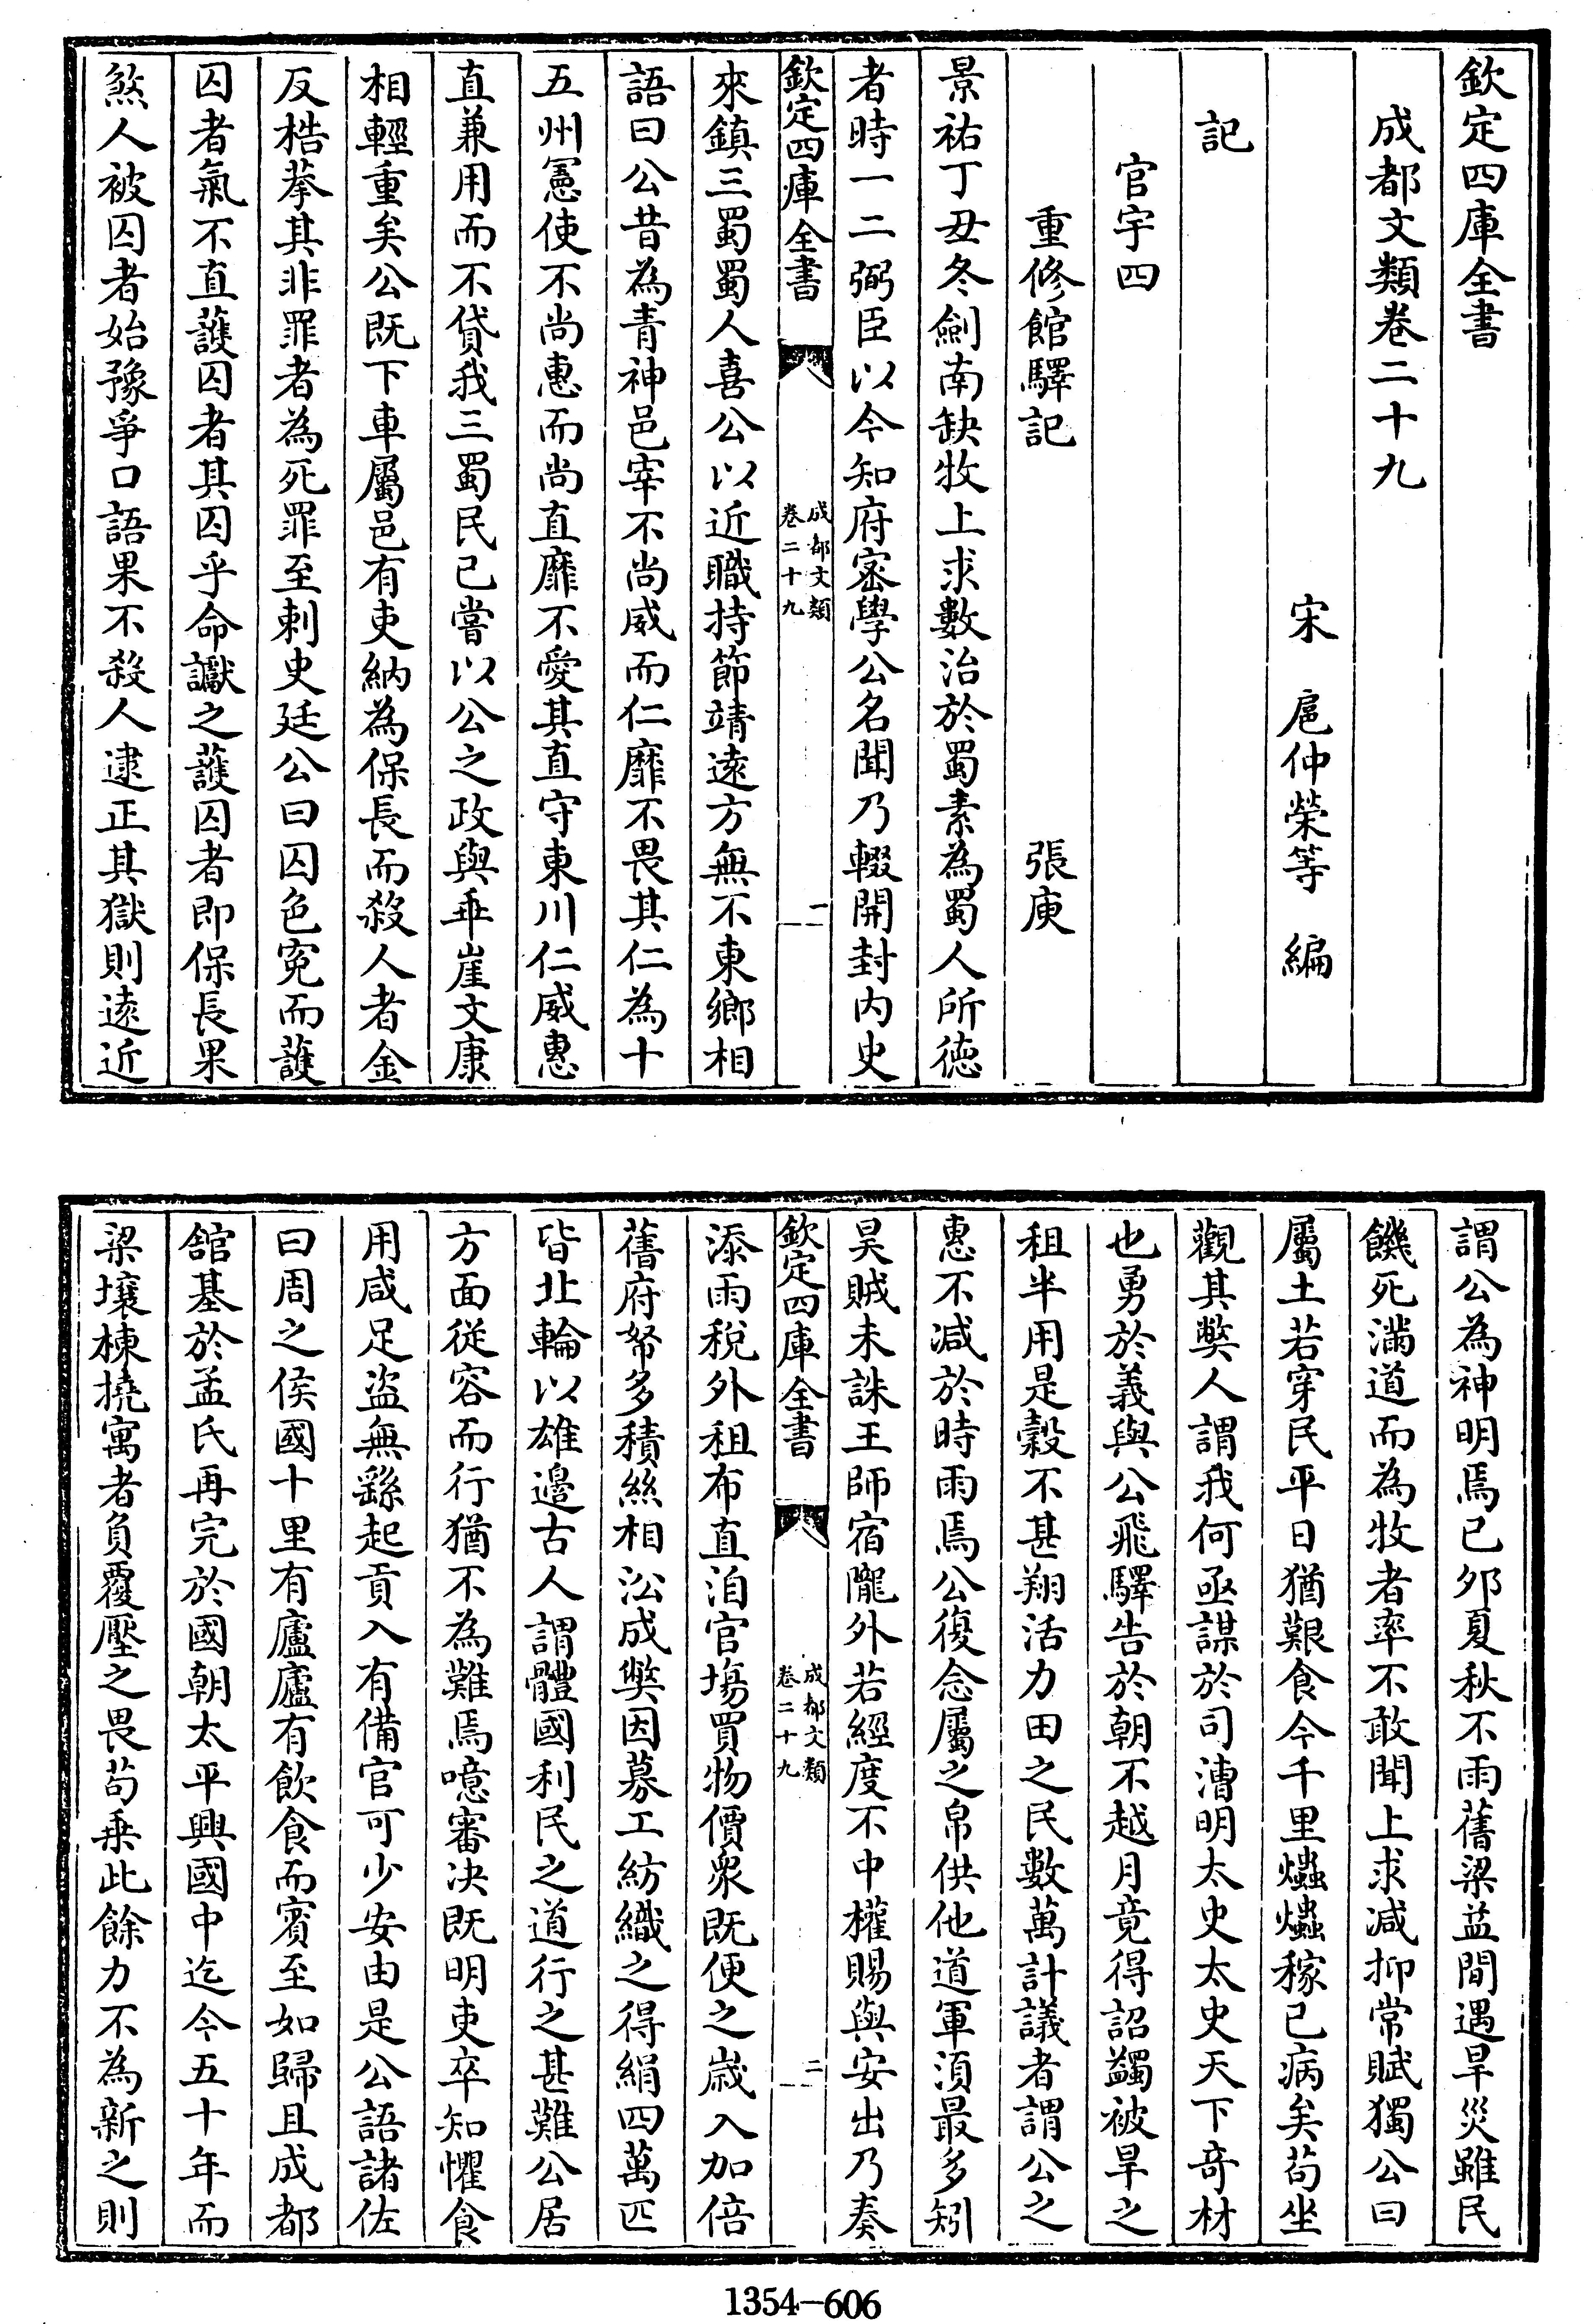 欽定四庫全書
成都文類卷二十九
宋　扈仲榮等　編
記
官宇四
重修館驛記　張𢈪
景祐丁丑冬劍南缺牧上求數治於蜀素為蜀人所德
者時一二弼臣以今知府密學公名聞乃輟開封内史
欽定四庫全書
成都文類
卷二十九
一
來鎮三蜀蜀人喜公以近職持節靖遠方無不東鄉相
語曰公昔為青神邑宰不尚威而仁靡不畏其仁為十
五州憲使不尚惠而尚直靡不愛其直守東川仁威惠
直兼用而不貸我三蜀民已嘗以公之政與乖崖文康
相輕重矣公既下車屬邑有吏納為保長而殺人者金
反梏拲其非罪者為死罪至刺史廷公曰囚色寃而䕶
囚者氣不直䕶囚者其囚乎命讞之䕶囚者即保長果
煞人被囚者始豫爭口語果不殺人逮正其獄則遠近
謂公為神明焉已夘夏秋不雨舊梁益間遇旱災雖民
饑死滿道而為牧者率不敢聞上求减抑常賦獨公曰
屬土若穿民平日猶艱食今千里爞爞稼已病矣茍坐
觀其斃人謂我何亟謀於司漕明太史太史天下竒材
也勇於義與公飛驛告於朝不越月竟得詔蠲被旱之
租半用是穀不甚翔活力田之民數萬計議者謂公之
惠不减於時雨焉公復念屬之帛供他道軍湏最多矧
昊賊未誅王師宿隴外若經度不中權賜與安出乃奏
欽定四庫全書
成都文類
卷二十九
二
添雨稅外租布直洎官塲買物價衆既便之嵗入加倍
舊府帑多積絲相㳂成弊因募工紡織之得絹四萬匹
皆北輪以雄邉古人謂體國利民之道行之甚難公居
方面從容而行猶不為難焉噫審决既明吏卒知懼食
用咸足盗無繇起貢入有備官可少安由是公語諸佐
曰周之侯國十里有廬廬有飲食而賓至如歸且成都
舘基於孟氏再完於國朝太平興國中迄今五十年而
梁壞棟撓寓者負覆壓之畏茍乗此餘力不為新之則
1354—606